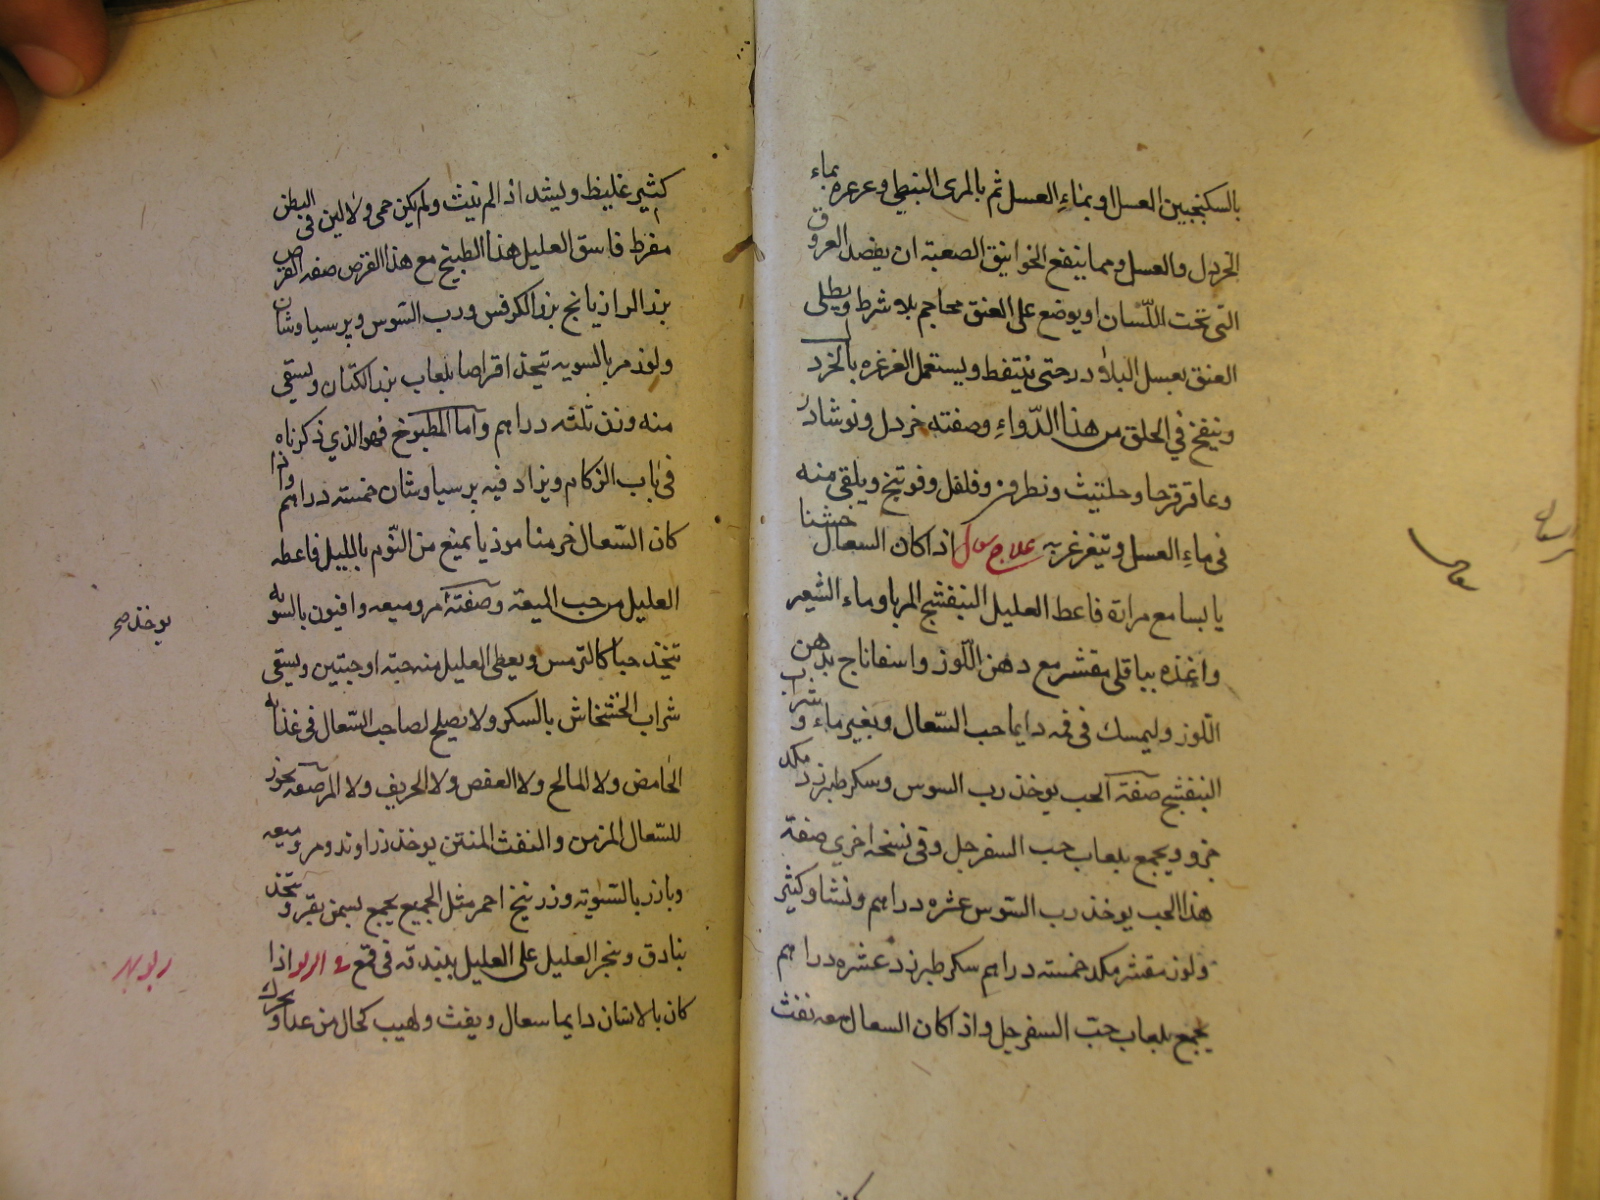 بالسكنجبين العسل او بماء العسل ثم بالمرى النبطى وغرغره بماء
الخردل والعسل ومما ينفع الخوانيق الصعبة ان يفصد العروق
التى تحت اللّسان او يوضع على العنق محاجم بلا شرط ويطلى
العنق بعسل البلادر حتى يتنفط ويستعمل الغرغره بالخردل
وينفخ في الحلق من هذا الدّواء وصفته خردل ونوشادر
وعاقرقرحا وحلتيث ونطرون وفلفل وفوتنج ويلقى منه
فى ماء العسل ويتغرغر به علاج سعال اذا كان السعال خشنا
يابسا مع مرارة فاعط العليل البنفشج المربا وماء الشعير
واغذه بباقلى مقشر مع دهن اللّوز واسفاناج بدهن
اللّوز وليمسك فى فمه دايما حب السّعال وبغير ماء وشراب
البنفشج صفة الحب يوخذ رب السوس وسكر طبرزد مكد
جزو ويجمع بلعاب حب السفرجل وفى نسخه اخرى صفة
هذا الحب يوخذ رب السّوس عشره دراهم ونشا وكثيرا
ولوز مقشر مكد خمسته دراهم سكر طبرزد عشره دراهم
يجمع بلعاب حبّ السفرجل واذا كان السعال معه نفث
سعال
كثير غليظ ويشتد اذا لم ينفث ولم يكن حمى ولا لين فى البطن
مفرط فاسق العليل هذا الطبيخ مع هذا القرص صفه القرص
بزر الرازيانج بزر الكرفس ورب السّوس وبرسياوشان
ولوز مر بالسويه تتخذ اقراصا بلعاب بزر الكتان ويسقى
منه وزن ثلثه دراهم واما المطبوخ فهو الذي ذكرناه
فى باب الزكام ويزاد فيه برسياوشان خمسته دراهم واذا
كان السّعال خرمنا موذيا يمنع من النّوم بالليل فاعطه
العليل من حب الميعة وصفته مر وميعه وافيون بالسويه
تتخذ حبا كالترمس ويعطى العليل منه حبّه او حبتين ويسقى
شراب الخشخاش بالسكر ولا يصلح لصاحب السّعال فى غذائه
الحامض ولا المالح ولا العفص ولا الحريف ولا المر صفة بخور
للسّعال المزمن والنفث المنتن يوخذ زراوند ومر وميعه
وبازر بالسّويّه وزرنيخ احمر مثل الجميع يجمع بسمن بقر وتتخذ
بنادق وبخر العليل على العليل ببندقه فى قمع فى الربو اذا
كان بالانسان دايما سعال ونفث ولهيب كحال من عدا وتحرك
يوخذ صح